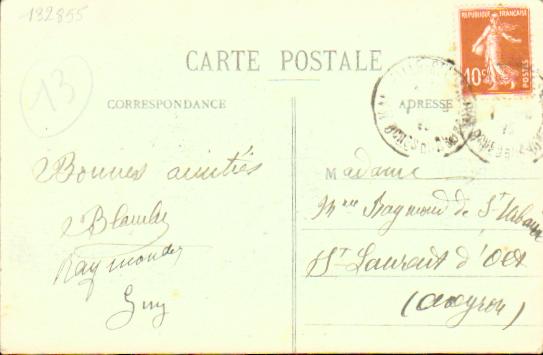 132855
13
CARTE POSTALE
CORRESPONDANCE
ADRESSE
REPUBLIQUE FRANÇAISE
10c
POSTES
Bonnes amitiés
Raymonde
Guy
Madame
Raymond de St
St Laurent d'Olt
(Aveyron)